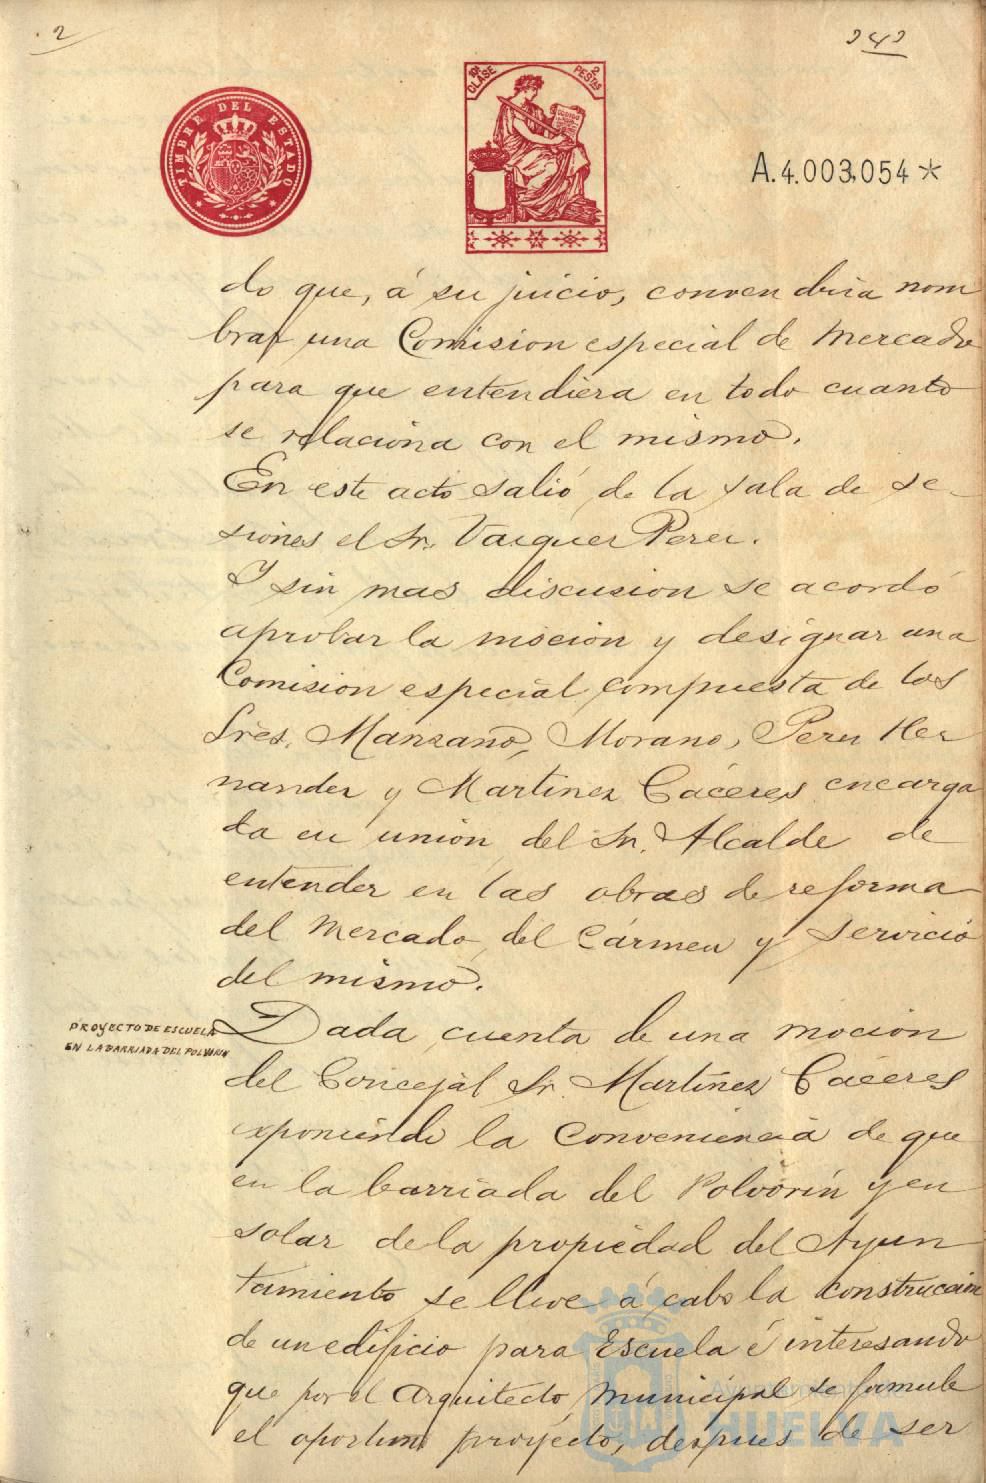 2
242
TIMBRE DEL ESTADO
10ª CLASE
2 PESTAS
A.4.003,054*
do que, á su juicio, convendria nom
brar una Comision especial de Mercado
para que entendiera en todo cuanto
se relaciona con el mismo.
En este acto salió de la sala de se-
siones el Sr. Vazquez Perez.
Y sin mas discusion se acordó
aprobar la moción y designar una
Comision especial compuesta de los
Sres. Manzano, Morano, Perez Her
nandez y Martinez Cáceres encarga
da en unión del Sr. Alcalde de
entender en las obras de reforma
del Mercado del Cármen y servicio
del mismo.
PROYECTO DE ESCUELA
EN LA BARRIADA DEL POLVORIN
Dada cuenta de una moción
del Concejal Sr. Martinez Cáceres
exponiendo la conveniencia de que
en la barriada del Polvorín y en
solar de la propiedad del Ayun
tamiento se lleve á cabo la construcción
de un edificio para Escuela é interesando
que por el Arquitecto Municipal se formule
el oportuno proyecto, despues de ser
Ayuntamiento de
HUELVA